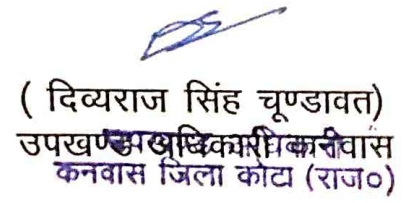 ( दिव्यराज सिंह चूण्डावत)
उपखण्ड अधिकारी कनवास
कनवास जिला कोटा (राज०)